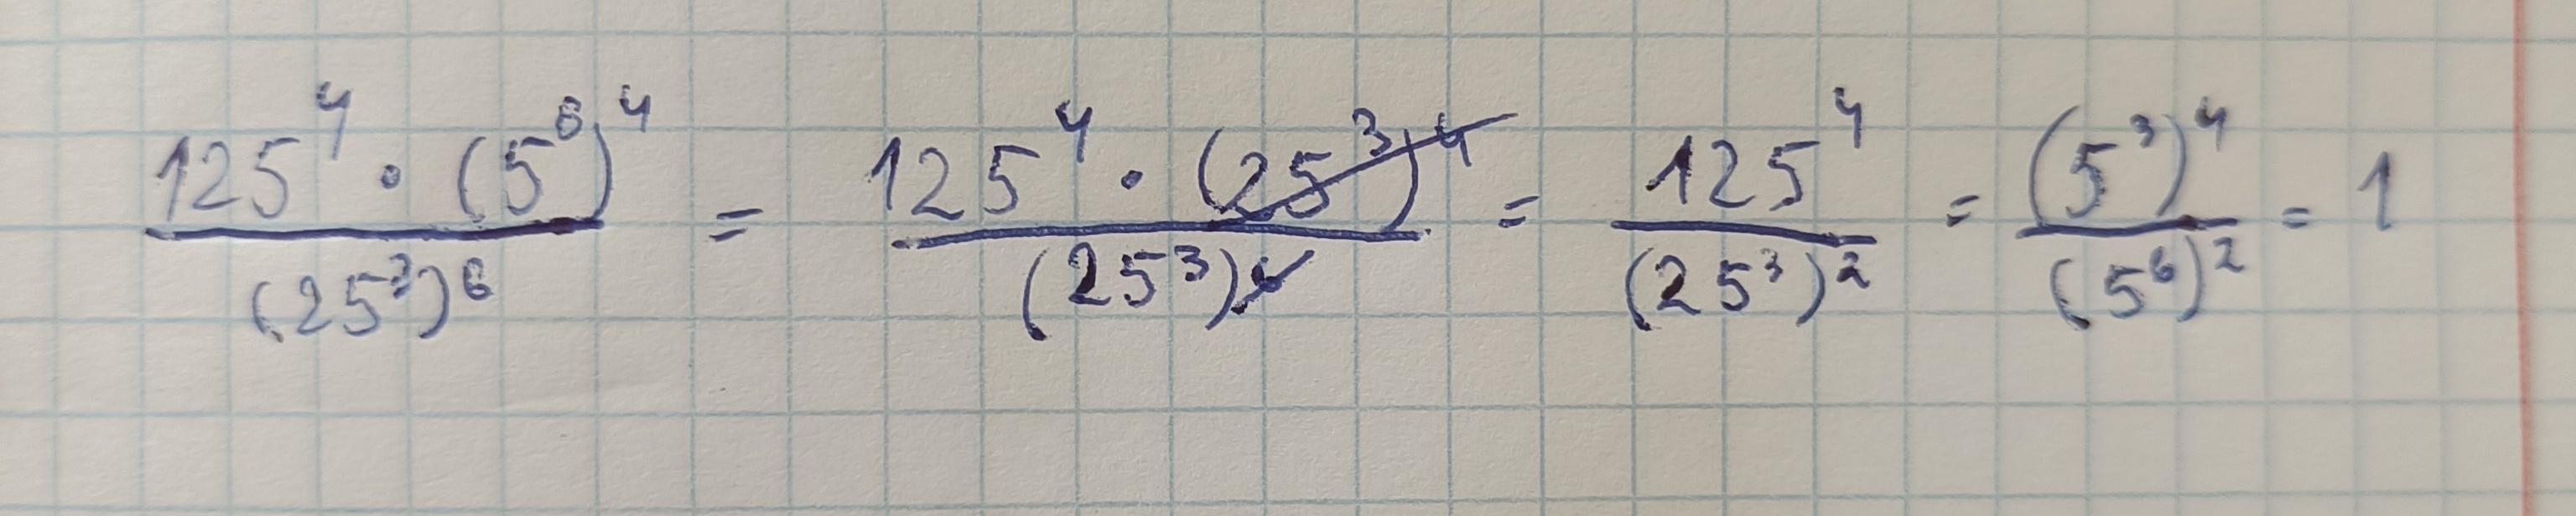 125⁴ · (5⁶)⁴ / (25³)⁶ = 125⁴ · (25³)⁴ / (25³)⁶ = 125⁴ / (25³)² = (5³)⁴ / (5⁶)² = 1